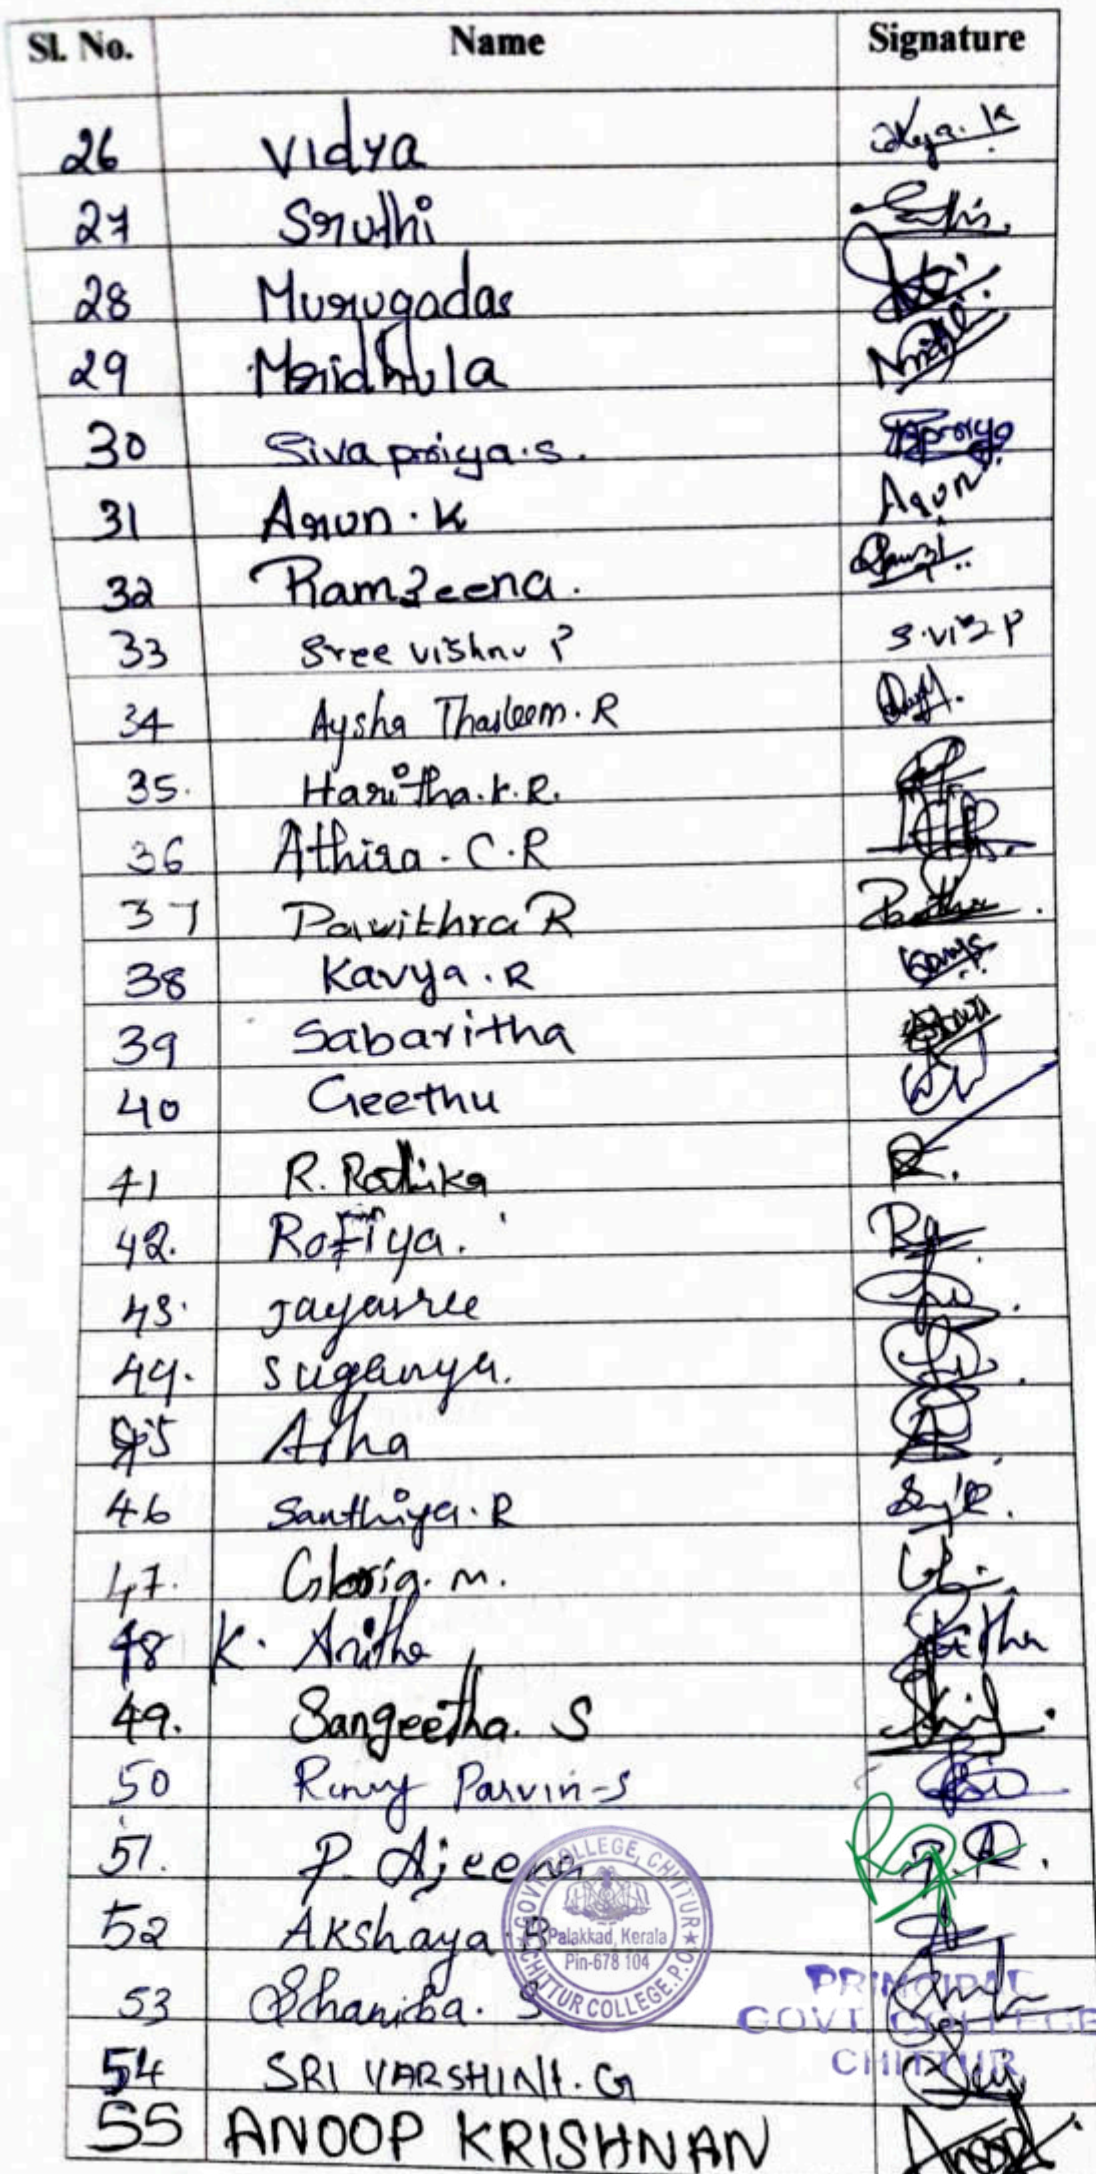 Sl. No. Name Signature
26 Vidya
27 Sruthi
28 Murugadas
29 Mridhula
30 Sivapriya.S.
31 Arun.K Arun
32 Ramzeena.
33 Sree vishnu P S.vis P
34 Aysha Thasleem.R
35. Haritha.K.R.
36 Athira.C.R
37 Pavithra R
38 Kavya.R
39 Sabaritha
40 Geethu
41 R. Radhika R.
42. Rofiya.
43. Jayasree
44. Suganya.
45 Asha
46 Santhiya.R
47. Gloria.M.
48 K. Anitha
49. Sangeetha. S
50 Parvin-S
51. P. Ajeena
52 Akshaya R
53 Shaniba. S
54 SRI VARSHINI.G
55 ANOOP KRISHNAN Anoop
GOVT. COLLEGE, CHITTUR
Palakkad, Kerala
Pin-678 104
CHITTUR COLLEGE.P.O
PRINCIPAL
GOVT. COLLEGE
CHITTUR